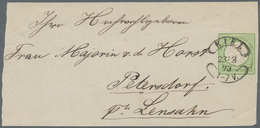 Ihrer Hochwohlgeboren
Frau Majorin v. d. Horst
Petersdorf
p/r Lensahn
KIEL
23/3
73